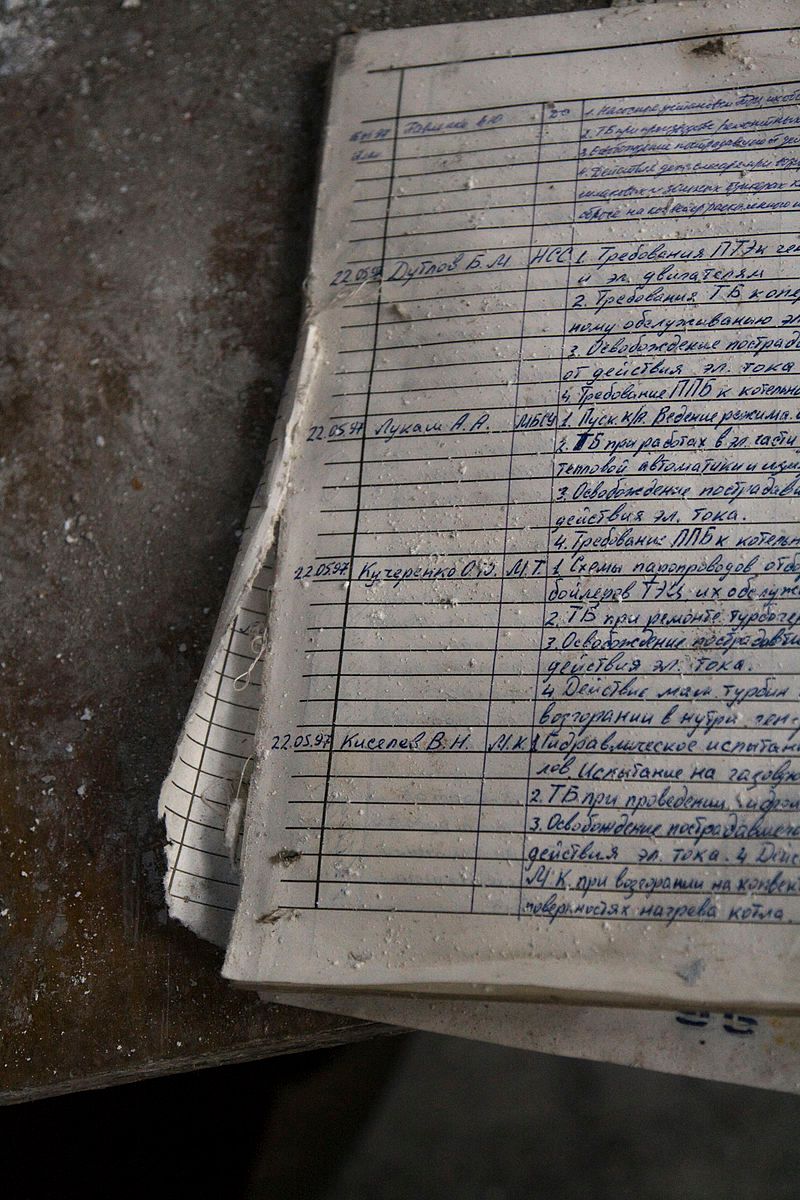 1. Насосные установки ТЭЦ
Павленко В.Ю.
2. ТБ при производстве ремонтных
3. Освобождение пострадавшего от
4. Действие
22.05.97 Дутлов Б.М НСС 1. Требования ПТЭ к ген
и эл. двигателям
2. Требования ТБ к опер
ному обслуживанию эл
3. Освобождение пострада
от действия эл. тока
4. Требование ППБ к котельн
22.05.97 Лукаш А.А. 1. Пуск к/а. Ведение режима.
2. ТБ при работах в эл. части
тепловой автоматики и изм
3. Освобождение пострадав
действия эл. тока.
4. Требование ППБ к котельн
22.05.97 Кучеренко О. М.Т. 1. Схемы паропроводов отб
бойлеров ТЭЦ, их обслуж
2. ТБ при ремонте турбоген
3. Освобождение пострадавш
действия эл. тока.
4. Действие маш. турбин
возгорании в нутри ген-р
22.05.97 Киселев В.Н. М.К. 1. Гидравлическое испытан
лов. Испытание на газовую
2. ТБ при проведении гидрои
3. Освобождение пострадавшего
действия эл. тока. 4 Дейс
М.К. при возгорании на конвект
поверхностях нагрева котла.